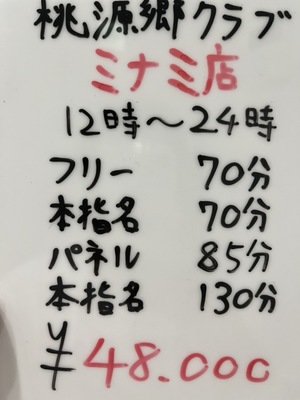 桃源郷クラブ
ミナミ店
12時〜24時
フリー 70分
本指名 70分
パネル 85分
本指名 130分
¥48.000